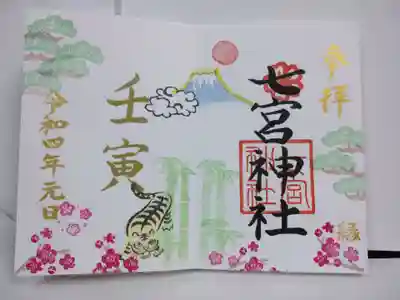 奉拝
七宮神社
壬寅
令和四年元日